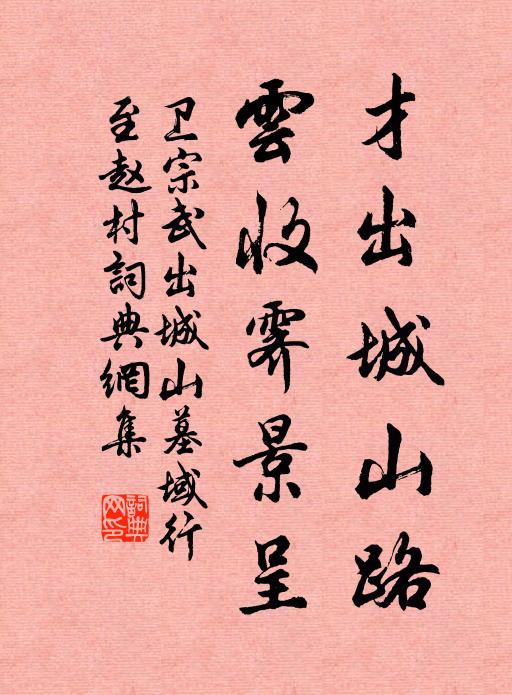 才出城山路
雲收霽景呈
卫宗武出城山墓域行
至赵村詞典網集
詞典
网印